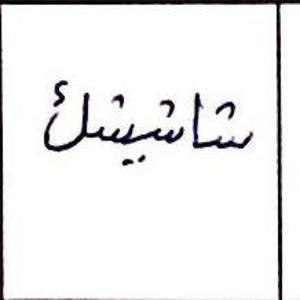 شاشيتك